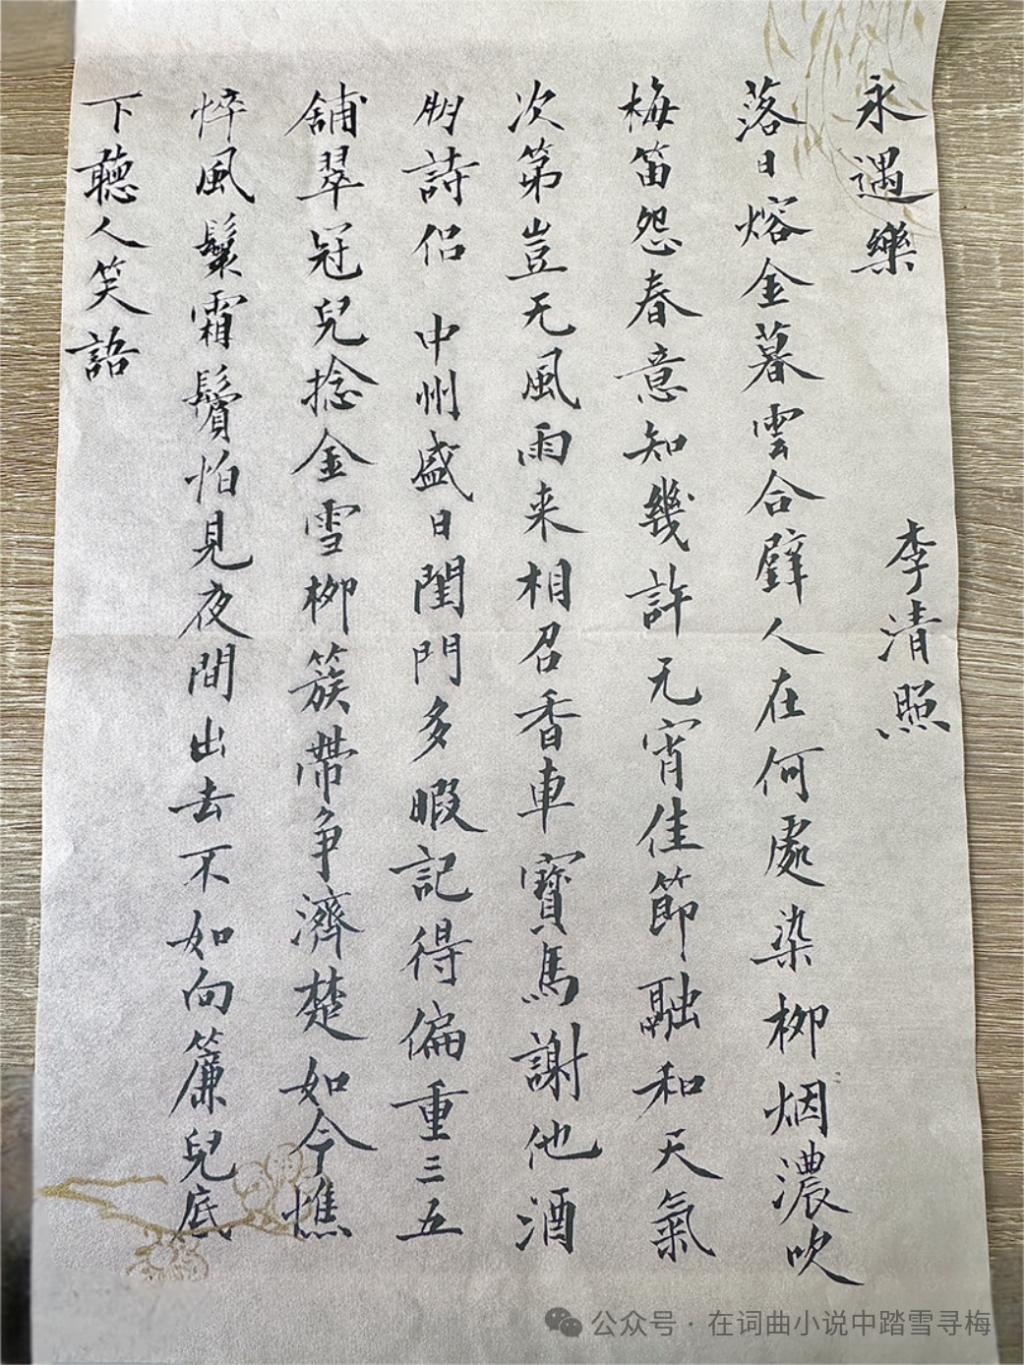 永遇樂
李清照
落日熔金暮雲合璧人在何處染柳烟濃吹
梅笛怨春意知幾許无宵佳節融和天氣
次第豈无風雨来相召香車寶馬謝他酒
朋詩侣 中州盛日閨門多暇記得偏重三五
舖翠冠兒捻金雪柳簇帶争濟楚如今憔
悴風鬟霜鬢怕見夜間出去不如向簾兒底
下聽人笑語
公众号·在词曲小说中踏雪寻梅